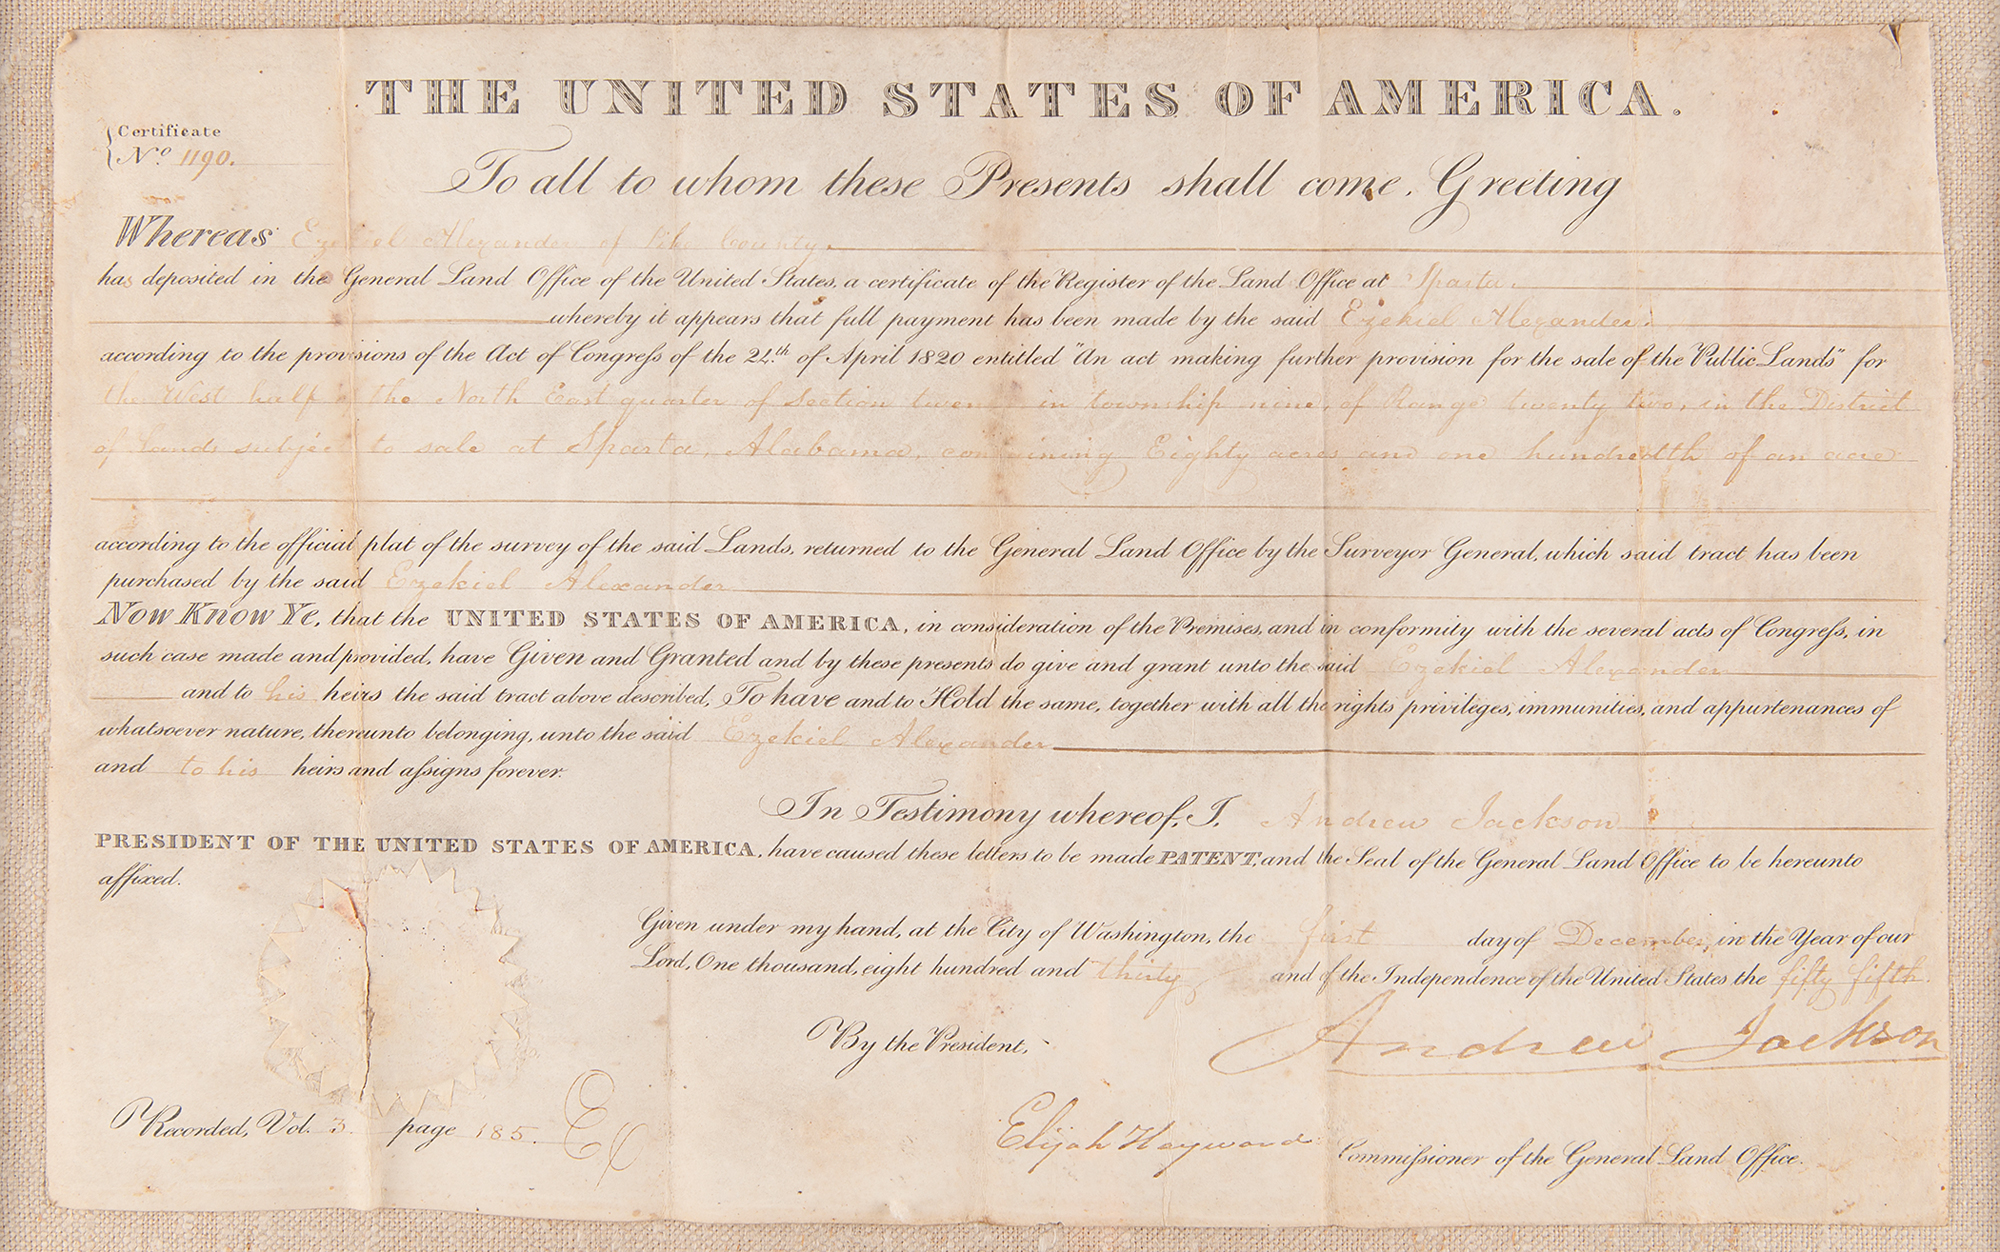 THE UNITED STATES OF AMERICA.
Certificate
No. 1190.
To all to whom these Presents shall come, Greeting
Whereas Ezekiel Alexander of Pike County,
has deposited in the General Land Office of the United States, a certificate of the Register of the Land Office at Sparta
whereby it appears that full payment has been made by the said Ezekiel Alexander
according to the provisions of the Act of Congress of the 24th of April 1820 entitled "An act making further provision for the sale of the Public Lands" for
the West half of the North East quarter of Section in township nine, of Range twenty two, in the District
of Lands subject to sale at Sparta, Alabama, containing Eighty acres and one hundredth of an acre
according to the official plat of the survey of the said Lands, returned to the General Land Office by the Surveyor General, which said tract has been
purchased by the said Ezekiel Alexander
Now Know Ye, that the UNITED STATES OF AMERICA, in consideration of the Premises, and in conformity with the several acts of Congress, in
such case made and provided, have Given and Granted and by these presents do give and grant unto the said Ezekiel Alexander
and to his heirs the said tract above described, To have and to Hold the same, together with all the rights privileges, immunities, and appurtenances of
whatsoever nature, thereunto belonging, unto the said Ezekiel Alexander
and to his heirs and assigns forever.
In Testimony whereof, I, Andrew Jackson
PRESIDENT OF THE UNITED STATES OF AMERICA, have caused these letters to be made PATENT, and the Seal of the General Land Office to be hereunto
affixed.
Given under my hand, at the City of Washington, the first day of December, in the Year of our
Lord, One thousand, eight hundred and thirty and of the Independence of the United States the fifty fifth.
By the President, Andrew Jackson
Elijah Hayward Commissioner of the General Land Office.
Recorded, Vol. 3 page 185.